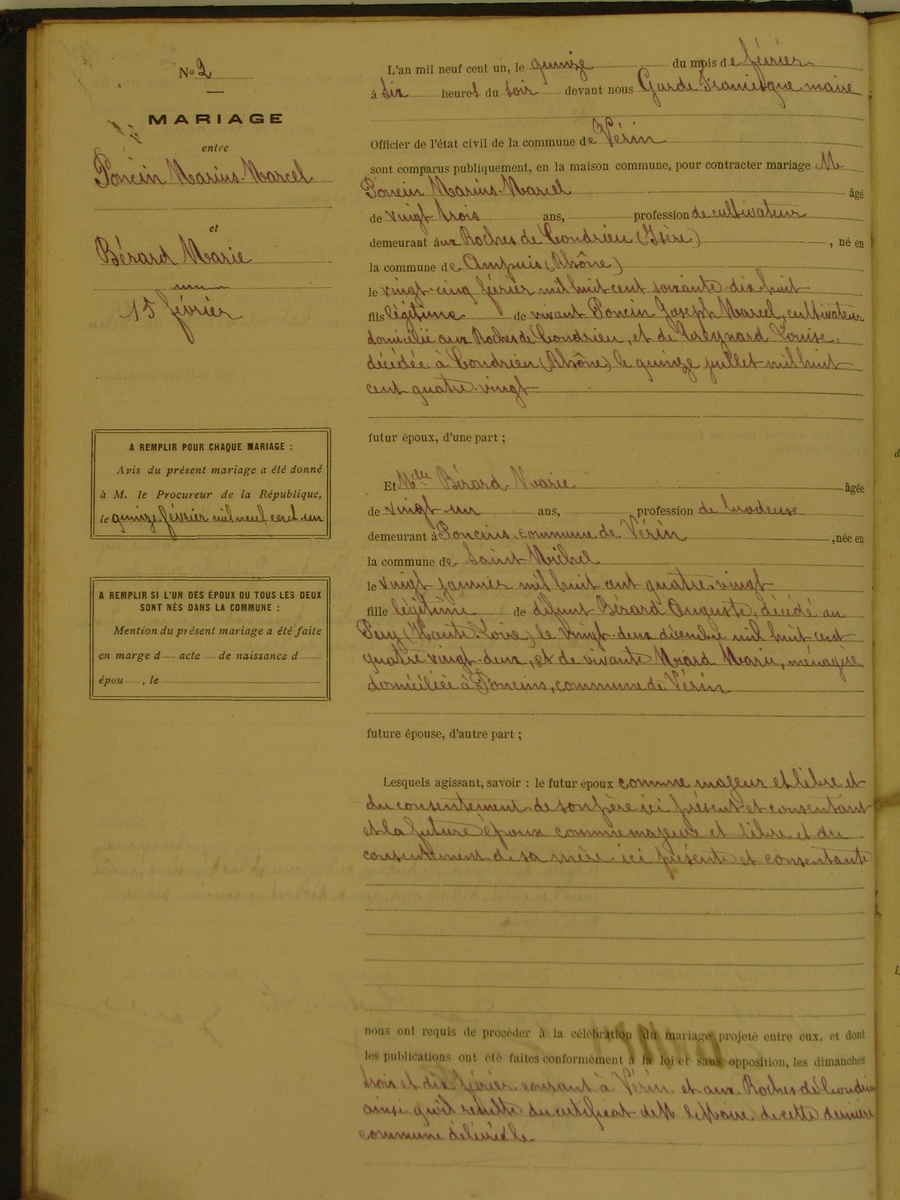 N° 2
MARIAGE
entre
Poncin Marius-Marcel
et
Bérard Marie
15 février
A REMPLIR POUR CHAQUE MARIAGE :
Avis du présent mariage a été donné
à M. le Procureur de la République,
le quinze février mil neuf cent un
A REMPLIR SI L'UN DES ÉPOUX OU TOUS LES DEUX
SONT NÉS DANS LA COMMUNE :
Mention du présent mariage a été faite
en marge d acte de naissance d
épou , le
L'an mil neuf cent un, le quinze du mois de février
à six heures du soir devant nous Garde Francisque, maire
Officier de l'état civil de la commune de Vérin
sont comparus publiquement, en la maison commune, pour contracter mariage M
Poncin Marius-Marcel âgé
de vingt trois ans, profession de cultivateur
demeurant aux Roches de Condrieu (Isère) , né en
la commune de Ampuis (Rhône)
le vingt-cinq février mil huit cent soixante dix huit
fils légitime de vivant Poncin Joseph Marcel, cultivateur
domicilié aux Roches de Condrieu, et de Louise,
décédée à Condrieu (Rhône) le quinze juillet mil huit
cent quatre-vingt
futur époux, d'une part ;
Et Melle Bérard Marie âgée
de vingt-un ans, profession de brodeuse
demeurant à Poncins, commune de Vérin , née en
la commune de Saint Michel
le vingt janvier mil huit cent quatre-vingt
fille légitime de défunt Bérard Auguste, décédé au
Puy (Haute-Loire) le vingt-deux décembre mil huit cent
quatre vingt-deux, et de vivante Marie, ménagère
domiciliée à Poncins, commune de Vérin
future épouse, d'autre part ;
Lesquels agissant, savoir : le futur époux comme majeur et libre et
du consentement de son père ici présent et consentant
et la future époux comme majeure et libre et du
consentement de sa mère ici présente et consentante
nous ont requis de procéder à la célébration du mariage projeté entre eux, et dont
les publications ont été faites conformément à la loi et sans opposition, les dimanches
trois et dix février courant à Vérin et aux Roches de Condrieu
ainsi qu'il résulte du certificat de M. le Maire de cette dernière
commune délivré le